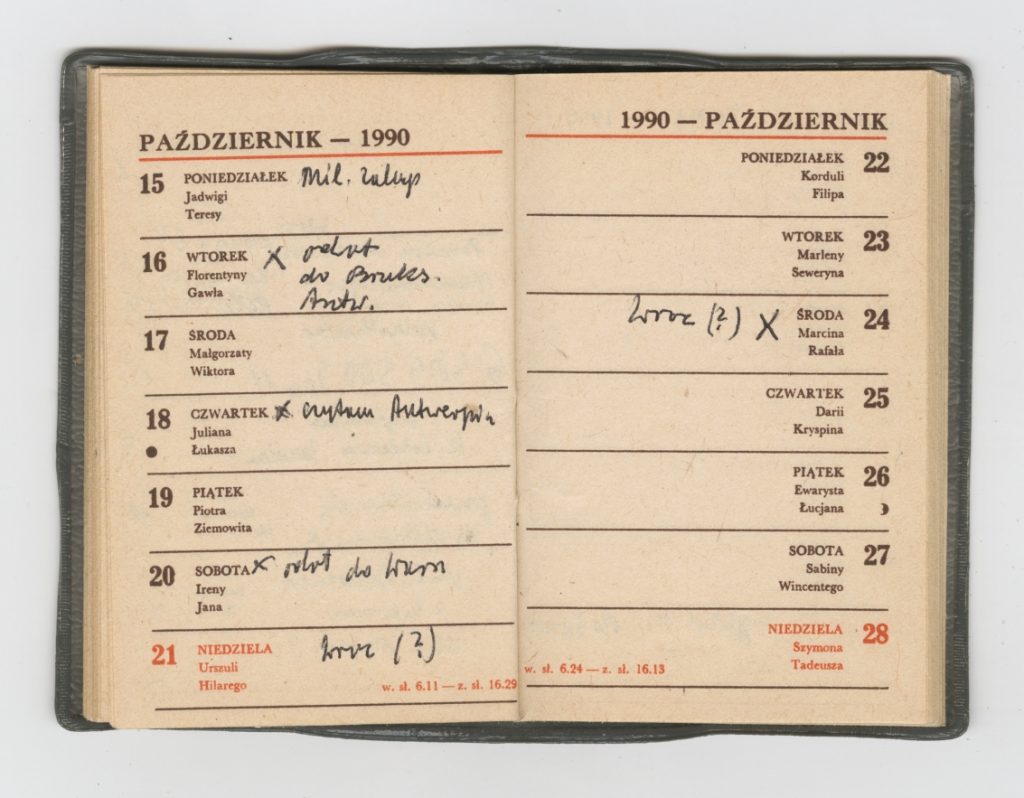 PAŹDZIERNIK — 1990
15 PONIEDZIAŁEK Mil.
Jadwigi
Teresy
16 WTOREK X odlot
Florentyny do Bruks.
Gawła Antw.
17 ŚRODA
Małgorzaty
Wiktora
18 CZWARTEK X czytam Antwerpia
Juliana
Łukasza
19 PIĄTEK
Piotra
Ziemowita
20 SOBOTA X odlot do
Ireny
Jana
21 NIEDZIELA (?)
Urszuli
Hilarego w. sł. 6.11 — z. sł. 16.29
1990 — PAŹDZIERNIK
PONIEDZIAŁEK 22
Korduli
Filipa
WTOREK 23
Marleny
Seweryna
(?) X ŚRODA 24
Marcina
Rafała
CZWARTEK 25
Darii
Kryspina
PIĄTEK 26
Ewarysta
Łucjana
SOBOTA 27
Sabiny
Wincentego
NIEDZIELA 28
Szymona
w. sł. 6.24 — z. sł. 16.13 Tadeusza